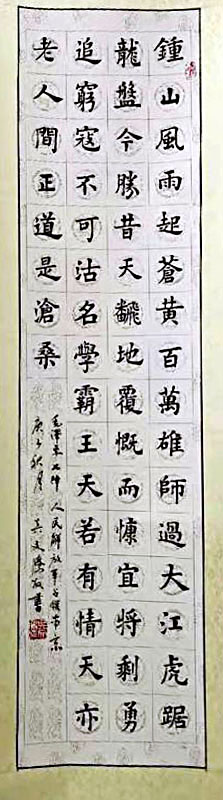 鍾山風雨起蒼黃百萬雄師過大江虎踞
龍盤今勝昔天飜地覆慨而慷宜將剩勇
追窮寇不可沽名學霸王天若有情天亦
老人間正道是滄桑
毛澤東七律 人民解放軍占領南京
庚子秋月 吳文書